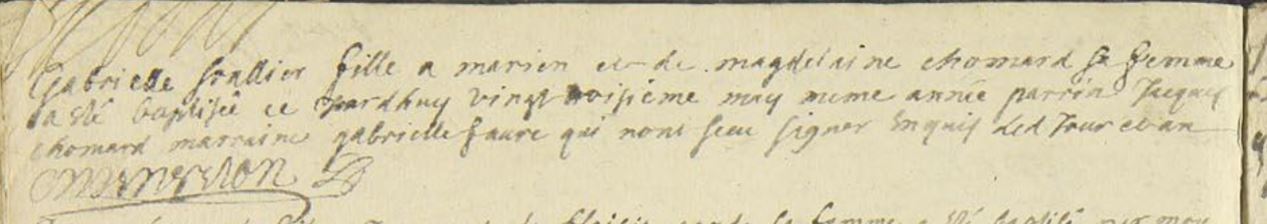 Gabrielle fille a marien et de magdelaine chomard sa femme
a esté baptisée ce jourdhuy vingt troisieme may meme année parrin Jacques
chomard marraine gabrielle faure qui nont sceu signer Enquis led Jour et an